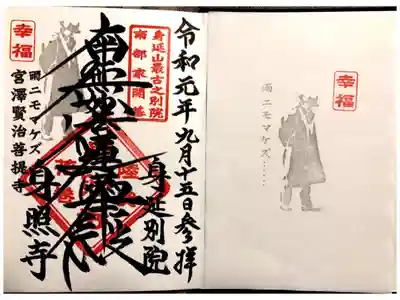 幸福
雨ニモマケズ……
令和元年九月十五日参拝
身延別院
身延山最古之別院
南部家開基
南無妙法蓮華経
身照寺
幸福
雨ニモマケズ
宮澤賢治菩提寺